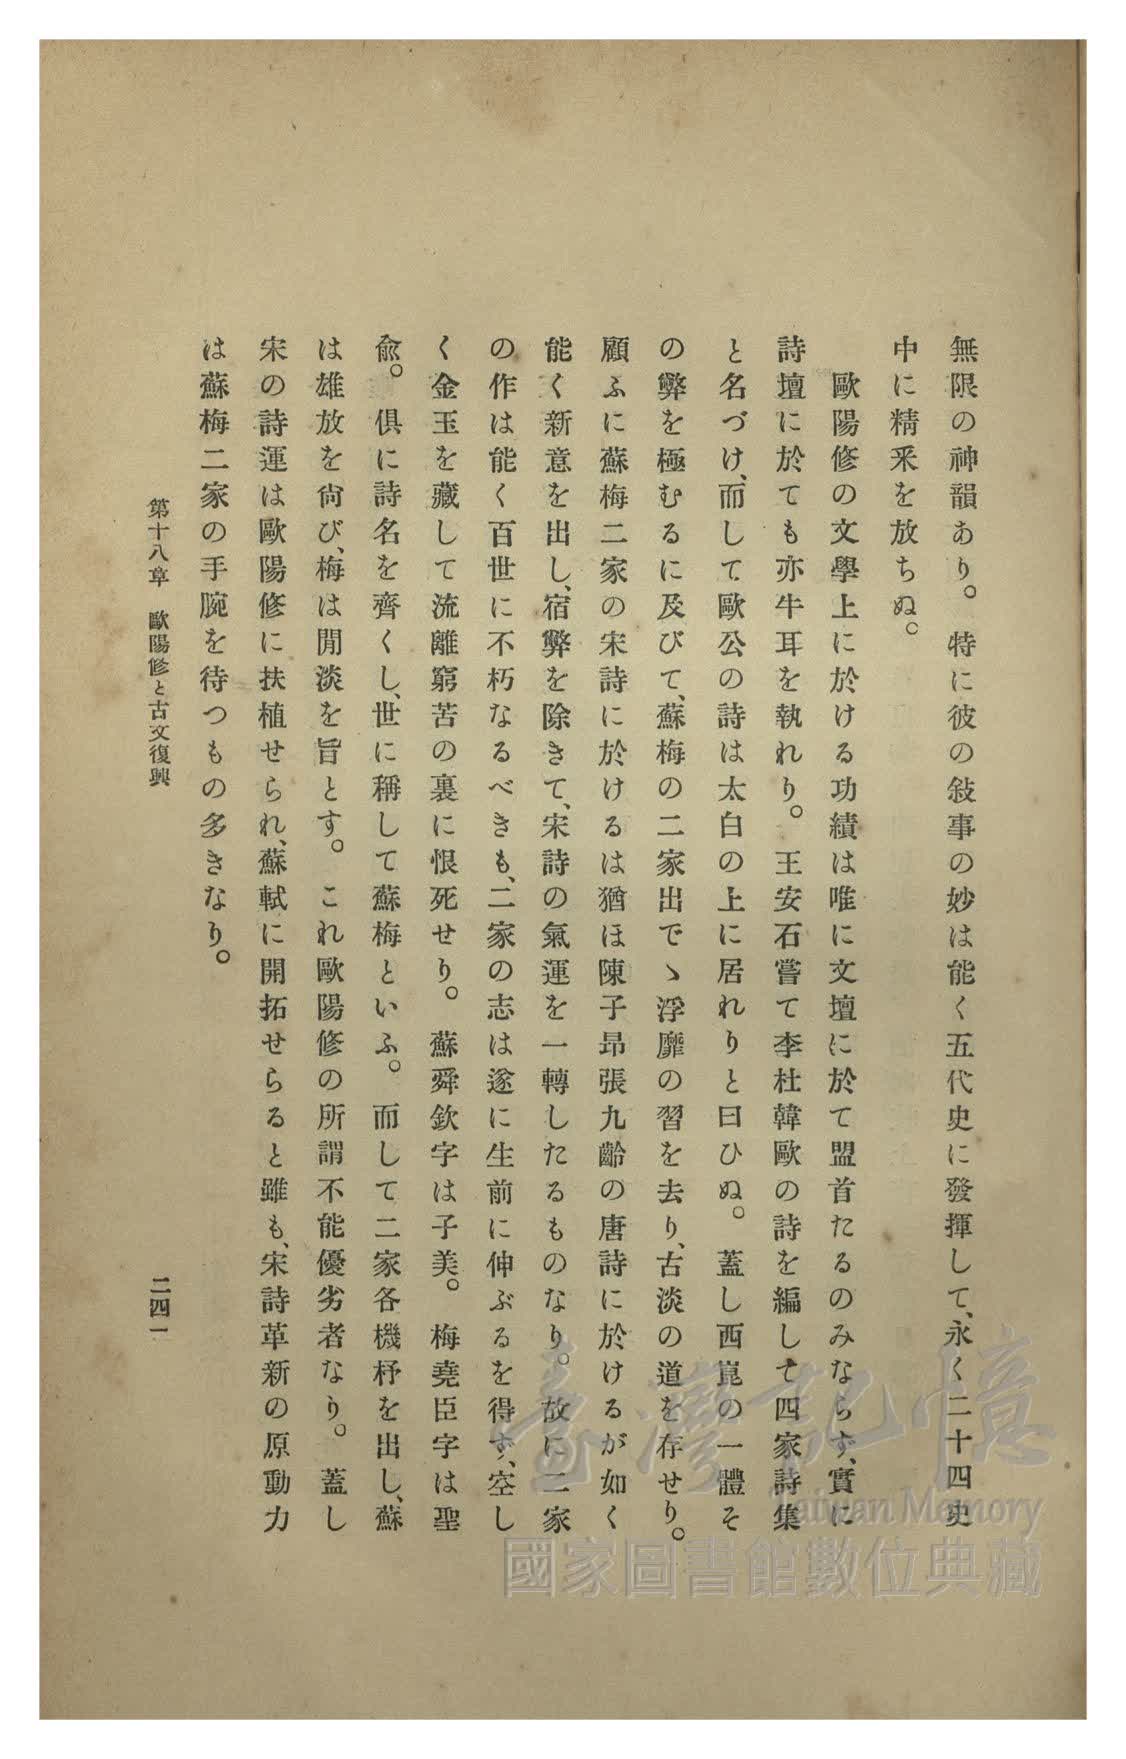 無限の神韻あり。特に彼の敍事の妙は能く五代史に發揮して、永く二十四史
中に精釆を放ちぬ。
歐陽修の文學上に於ける功績は唯に文壇に於て盟首たるのみならず、實に
詩壇に於ても亦牛耳を執れり。王安石嘗て李杜韓歐の詩を編して四家詩集
と名づけ、而して歐公の詩は太白の上に居れりと曰ひぬ。蓋し西崑の一體そ
の弊を極むるに及びて、蘇梅の二家出でゝ浮靡の習を去り、古淡の道を存せり。
顧ふに蘇梅二家の宋詩に於けるは猶ほ陳子昂張九齡の唐詩に於けるが如く
能く新意を出し、宿弊を除きて、宋詩の氣運を一轉したるものなり。故に二家
の作は能く百世に不朽なるべきも、二家の志は遂に生前に伸ぶるを得ず、空し
く金玉を藏して流離窮苦の裏に恨死せり。蘇舜欽字は子美。梅堯臣字は聖
兪。俱に詩名を齊くし、世に稱して蘇梅といふ。而して二家各機杼を出し、蘇
は雄放を尙び、梅は閒淡を旨とす。これ歐陽修の所謂不能優劣者なり。蓋し
宋の詩運は歐陽修に扶植せられ、蘇軾に開拓せらると雖も、宋詩革新の原動力
は蘇梅二家の手腕を待つもの多きなり。
第十八章 歐陽修と古文復興
二四一
臺灣記憶
Taiwan Memory
國家圖書館數位典藏